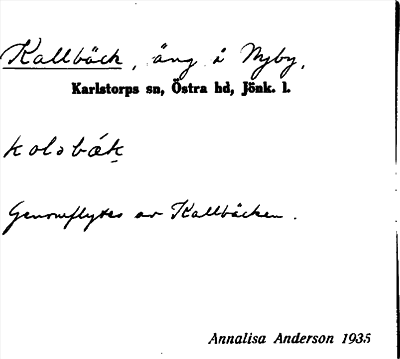 Kallbäck, äng å Nyby.
Karlstorps sn, Östra hd, Jönk. l.
kolsbäk
Genomflytes av Kallbäcken.
Annalisa Anderson 1935